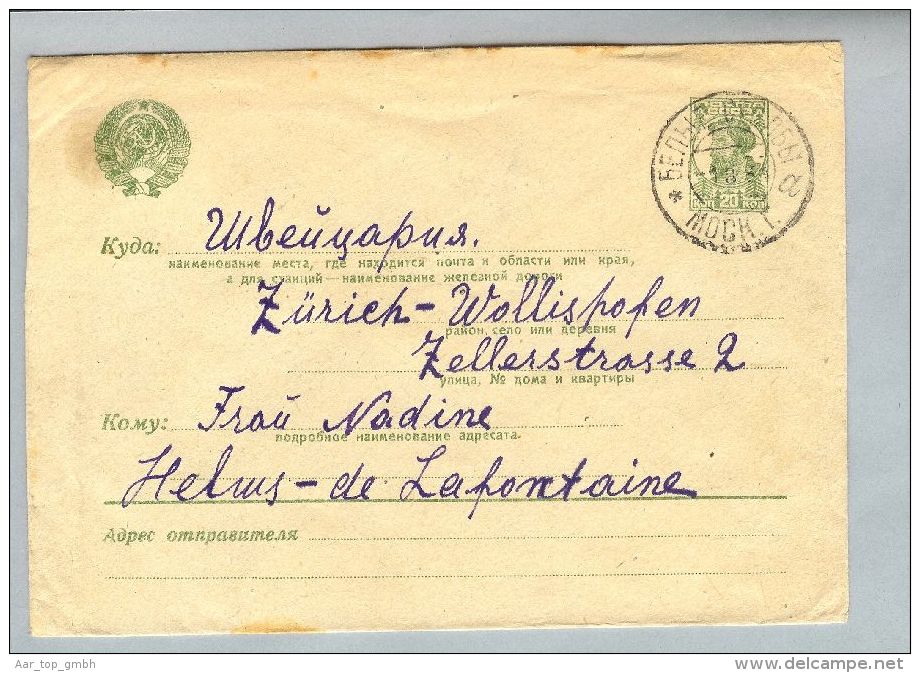 БЕЛЫЕ СТОЛБЫ
а
МОСК. Г.
20 КОП
Куда: Швейцария.
наименование места, где находится почта и области или края,
а для станций—наименование железной дороги
Zürich-Wollishofen
район, село или деревня
Zellerstrasse 2
улица, № дома и квартиры
Кому: Frau Nadine
подробное наименование адресата.
Helms-de Lafontaine
Адрес отправителя
Aar_top_gmbh
delcampe.net